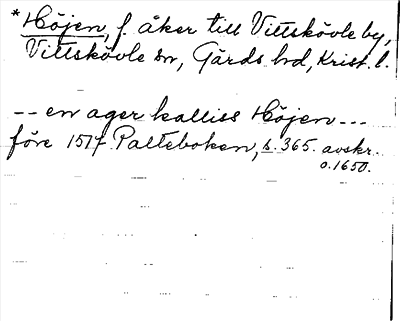 *Höjen, f. åker till Vittskövle by,
Vittskövle sn, Gärds hd, Krist. l.
-- en ager kalliss Höjen ---
före 1517 Palteboken, s. 365. avskr.
o. 1650.